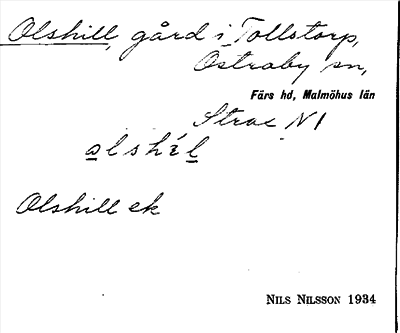 Olshill, gård i Tollstorp,
Östraby sn,
Färs hd, Malmöhus län
N1
Olshill ek
NILS NILSSON 1934